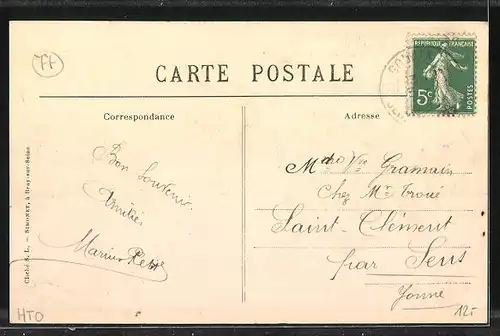 77
CARTE POSTALE
RÉPUBLIQUE FRANÇAISE
5c
POSTES
Correspondance
Adresse
Bon Souvenir
Amitiés
Marius
Vve Gramain
Chez Mr Troué
Saint-Clément
par Sens
Yonne
Cliché S. L. — SIMONET, à Bray-sur-Seine
HTO
12-